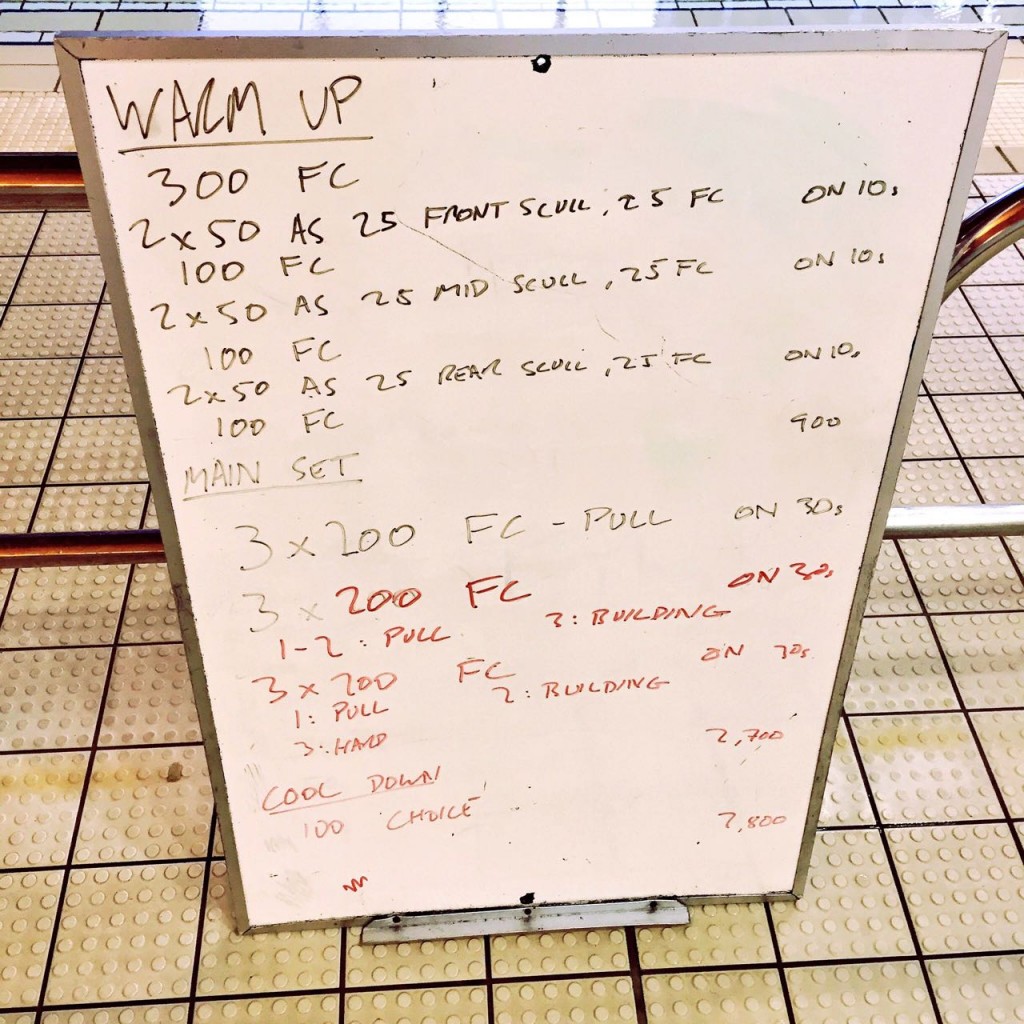 WARM UP
300 FC
2x50 AS 25 FRONT SCULL, 25 FC ON 10s
100 FC
2x50 AS 25 MID SCULL, 25 FC ON 10s
100 FC
2x50 AS 25 REAR SCULL, 25 FC ON 10s
100 FC 900
MAIN SET
3x200 FC - PULL ON 30s
3x200 FC ON 30s
1-2: PULL 3: BUILDING
3x200 FC ON 30s
1: PULL 2: BUILDING
3: HARD 2,700
COOL DOWN
100 CHOICE 2,800